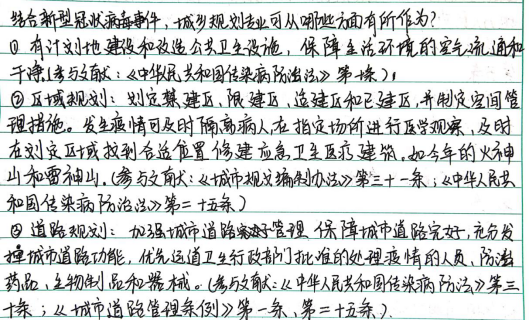 结合新型冠状病毒事件，城乡规划专业可从哪些方面有所作为？
① 有计划地建设和改造公共卫生设施，保障生活环境的空气流通和
干净(参考文献：《中华人民共和国传染病防治法》第十条)；
② 区域规划：划定禁建区、限建区、适建区和已建区，并制定空间管
理措施。发生疫情可及时隔离病人，在指定场所进行医学观察，及时
在划定区域找到合适位置修建应急卫生医疗建筑，如今年的火神
山和雷神山。(参考文献：《城市规划编制办法》第三十一条；《中华人民共
和国传染病防治法》第二十五条)
③ 道路规划：加强城市道路管理，保障城市道路完好，充分发
挥城市道路功能，优先运道卫生行政部门批准的处理疫情的人员、防治
药品、生物制品和器械。(参考文献：《中华人民共和国传染病防治法》第三
十条；《城市道路管理条例》第一条、第二十五条)